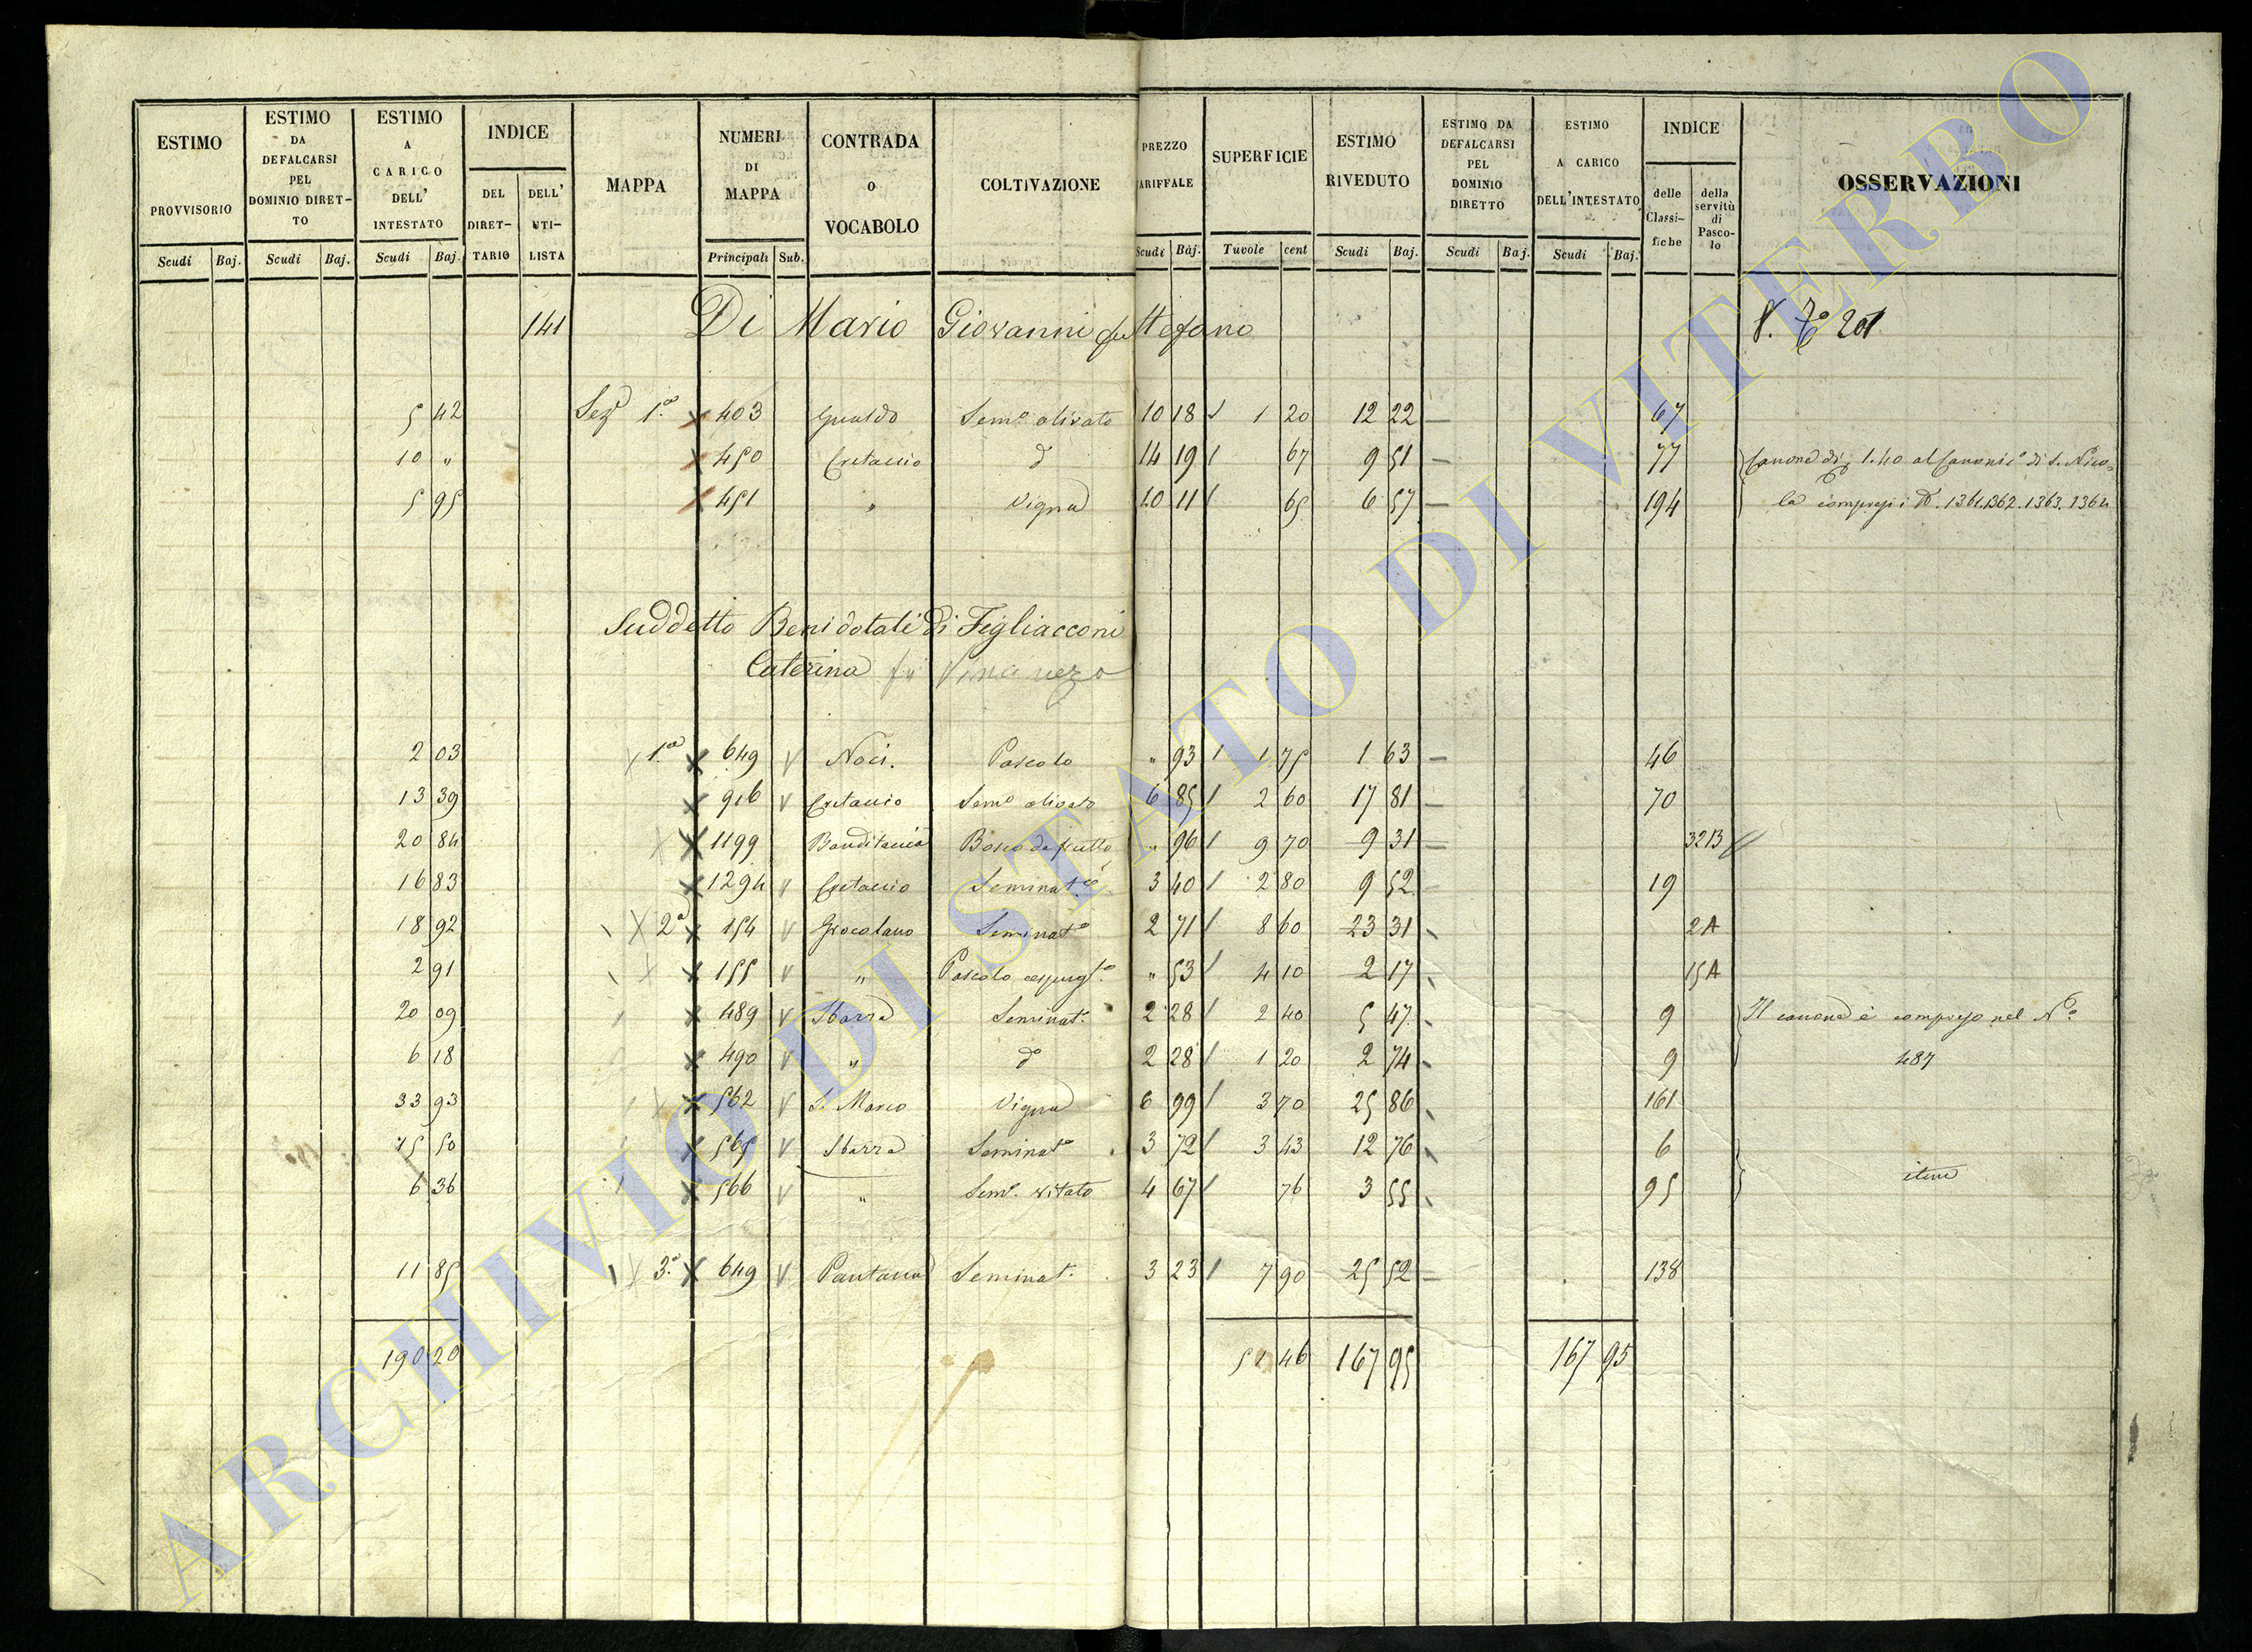 ESTIMO PROVVISORIO | ESTIMO DA DEFALCARSI PEL DOMINIO DIRET-TO | ESTIMO A CARICO DELL' INTESTATO | INDICE DEL DIRET-TARIO | DELL' UTI-LISTA | MAPPA | NUMERI DI MAPPA | CONTRADA O VOCABOLO | COLTIVAZIONE | PREZZO ARIFFALE | SUPERFICIE | ESTIMO RIVEDUTO | ESTIMO DA DEFALCARSI PEL DOMINIO DIRETTO | ESTIMO A CARICO DELL'INTESTATO | INDICE delle Classi-fiche | della servitù di Pasco-lo | OSSERVAZIONI
Scudi | Baj. | Scudi | Baj. | Scudi | Baj. | Principali | Sub. | Scudi | Baj. | Tavole | cent | Scudi | Baj. | Scudi | Baj. | Scudi | Baj.
141 Di Mario Giovanni fu Stefano
5 42 Sez.e 1.a 403 Gualdo Sem.o olivato 10 18 1 20 12 22 — 67
10 " 450 Cretaccio d.o 14 19 67 9 51 — 77 Canone di 1.40 al Canonic.o di S. Nico=
5 95 451 " Vigna 10 11 65 6 57 — 194 la compresi i 1361.1362.1363.1364
Suddetto Beni dotali di Figliacconi
Caterina fu
2 03 1.a 649 Noci. Pascolo " 93 1 75 1 63 — 46
13 39 916 Cretaccio Sem.o olivato 6 85 2 60 17 81 — 70
20 84 1199 Banditaccia Bosco da frutto " 96 9 70 9 31 — 3213
16 83 1294 Cretaccio Seminat.o 3 40 2 80 9 52 19
18 92 2.a 154 Seminat.o 2 71 8 60 23 31 2A
2 91 155 " Pascolo " 53 4 10 2 17 15A
20 09 489 Sbarra Seminat.o 2 28 2 40 5 47 9 Il canone è compreso nel N.o
6 18 490 " d.o 2 28 1 20 2 74 9 487
33 93 562 S. Marco Vigna 6 99 3 70 25 86 161
15 50 565 Sbarra Seminat.o 3 72 3 43 12 76 6
6 36 566 " Sem.o vitato 4 67 76 3 55 95 item
11 85 3.a 649 Pantana Seminat.o 3 23 7 90 25 52 — 138
190 20 51 46 167 95 167 95
ARCHIVIO DI STATO DI VITERBO